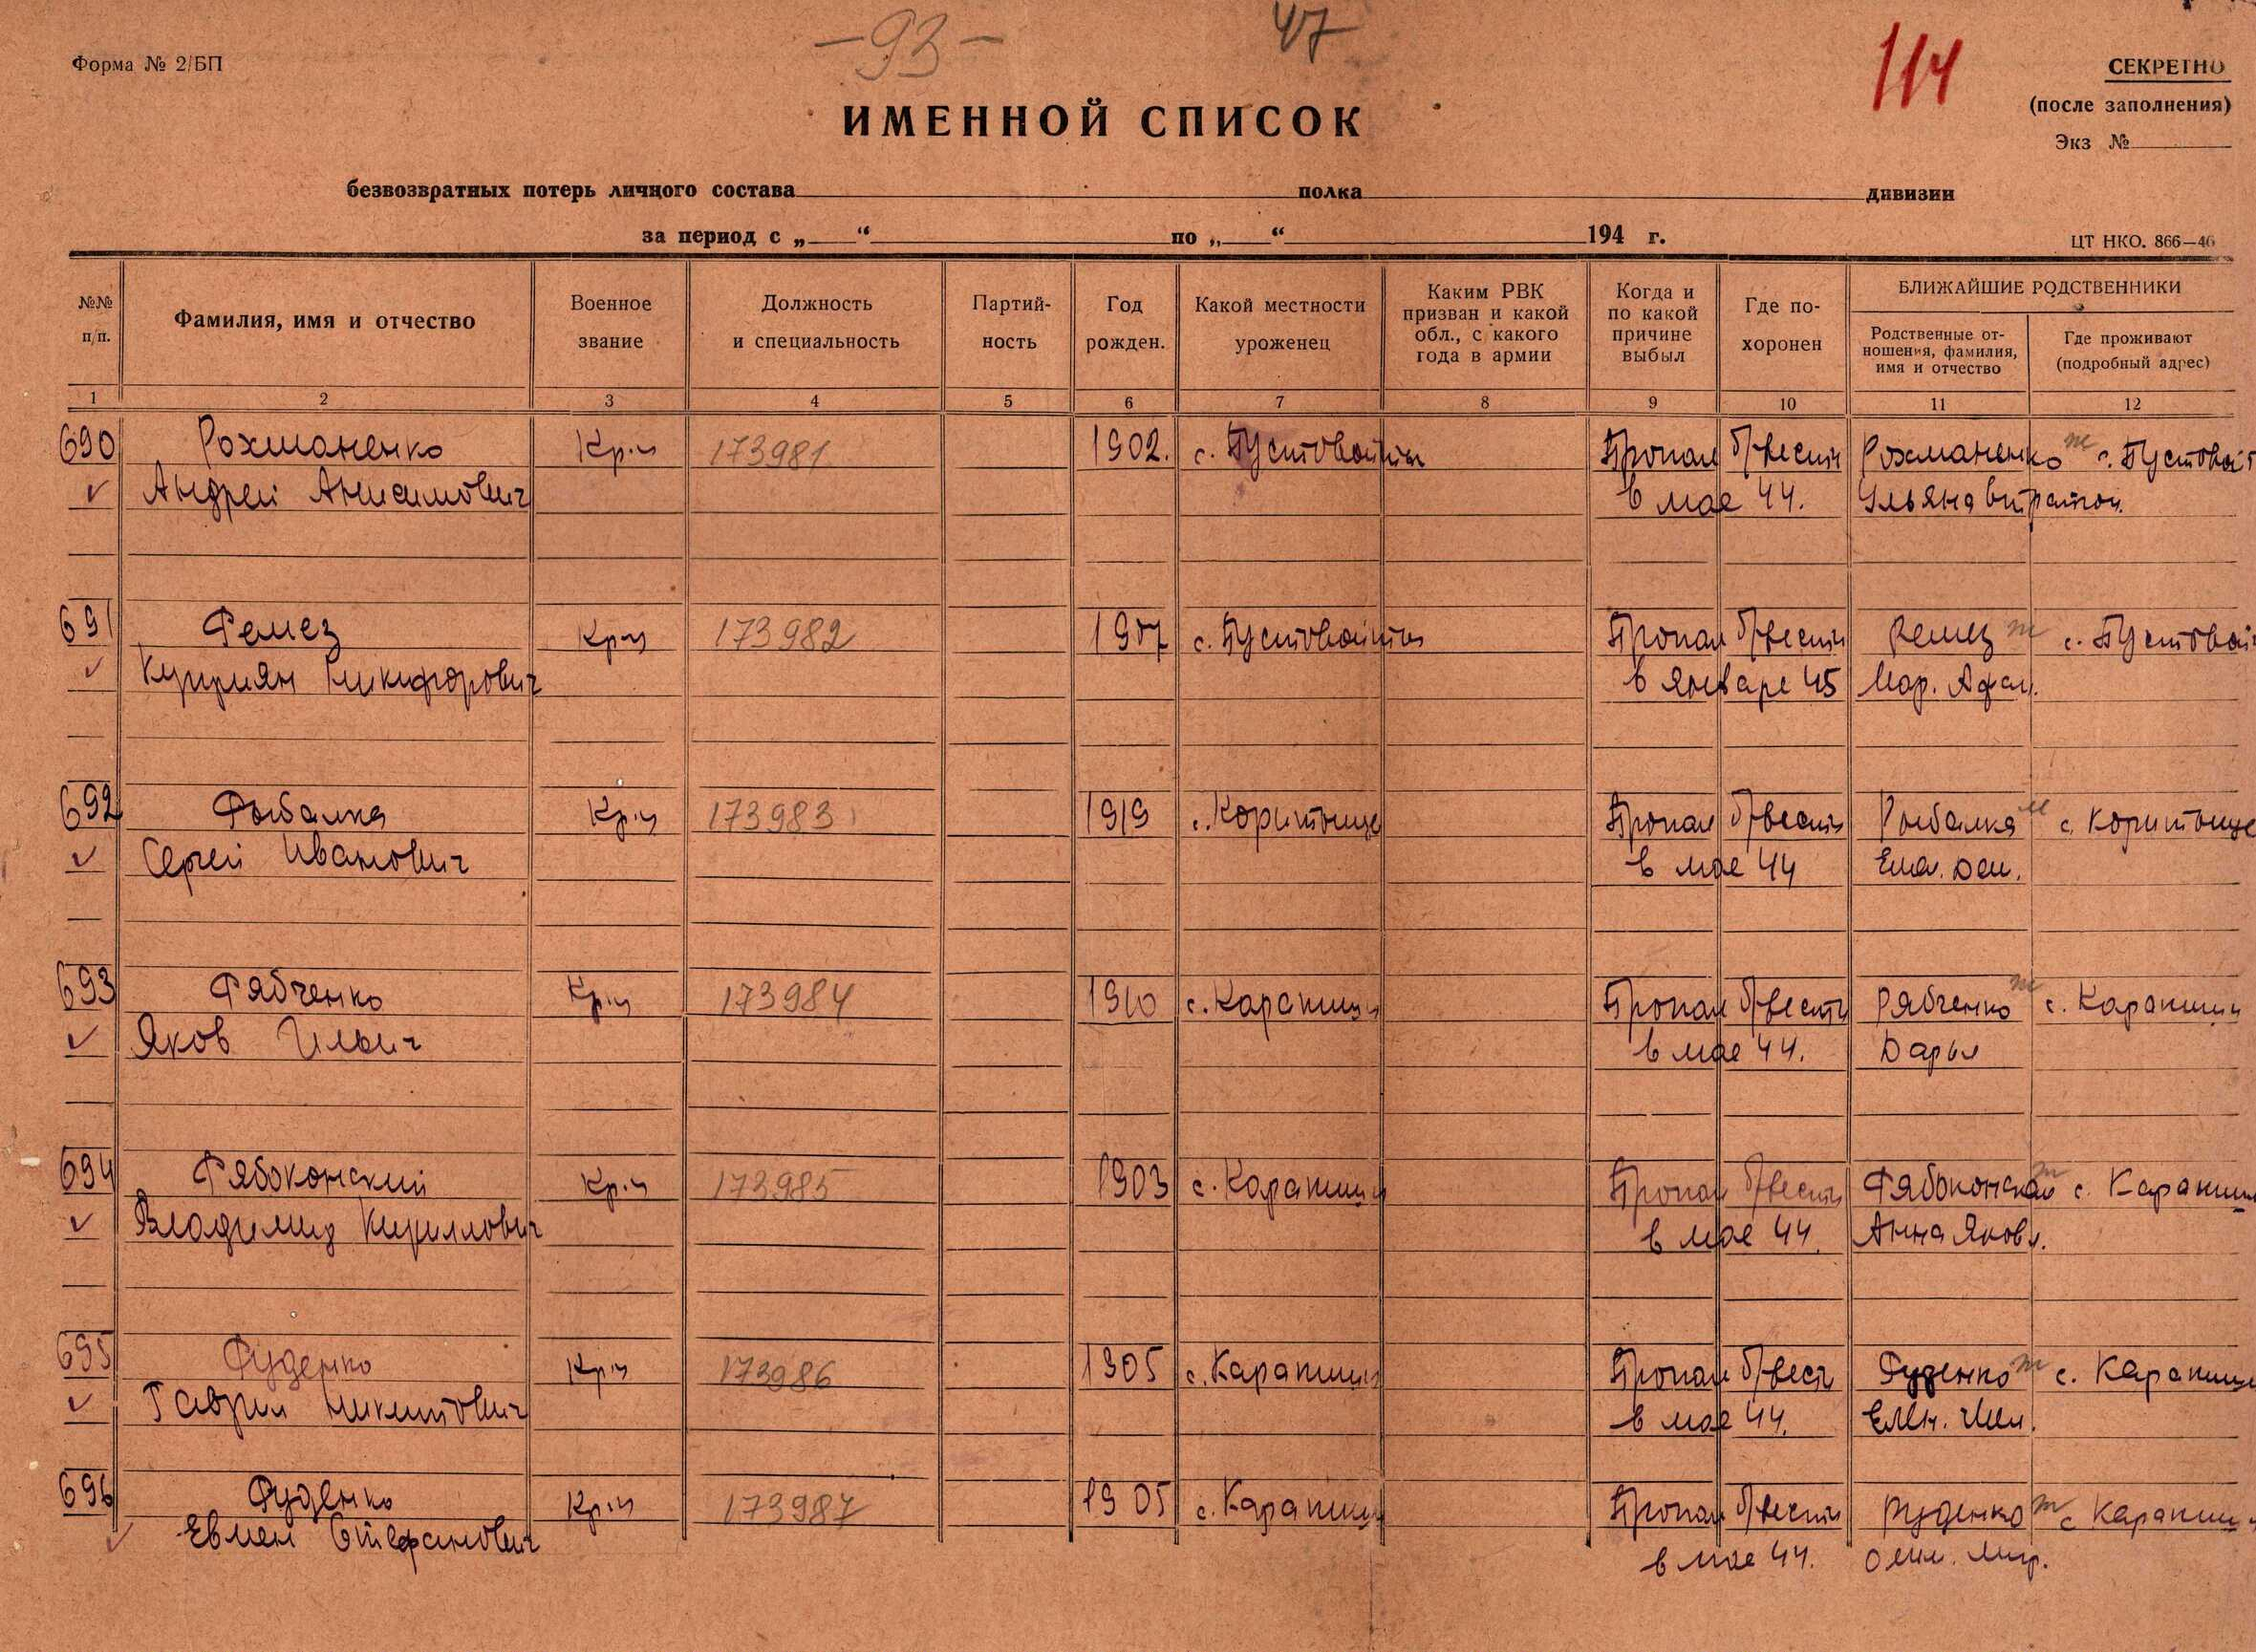 -93-
47
114
Форма № 2/БП
СЕКРЕТНО
(после заполнения)
Экз №
ИМЕННОЙ СПИСОК
безвозвратных потерь личного состава полка дивизии
за период с „ “ по „ “ 194 г.
ЦТ НКО. 866—46
№№ п/п.
Фамилия, имя и отчество
Военное звание
Должность и специальность
Партий-ность
Год рожден.
Какой местности уроженец
Каким РВК призван и какой обл., с какого года в армии
Когда и по какой причине выбыл
Где по-хоронен
БЛИЖАЙШИЕ РОДСТВЕННИКИ
Родственные от-ношения, фамилия, имя и отчество
Где проживают (подробный адрес)
1 2 3 4 5 6 7 8 9 10 11 12
690 Рохманенко Кр-ц 173981 1902. с. Пустовойты Пропал б/вести Рохманенко ж с. Пустовойт
Андрей Анисимович в мае 44. Ульяна
691 Ремез Кр-ц 173982 1907 с. Пустовойты Пропал б/вести Ремез ж с. Пустовой
Куприян Никифорович в январе 45 Мар. Афан.
692 Рыбалка Кр-ц 173983 1919 с. Коритыще Пропал б/вести Рыбалка м с. Коритыще
Сергей Иванович в мае 44
693 Рябченко Кр-ц 173984 1910 с. Карапиши Пропал б/вести Рябченко ж с. Карапиши
Яков Ильич в мае 44. Дарья
694 Рябоконский Кр-ц 173985 1903 с. Карапиши Пропал б/вести Рябоконская ж с. Карапиши
Владимир Кириллович в мае 44. Анна Яковл.
695 Руденко Кр-ц 173986 1905 с. Карапиши Пропал б/вест Руденко ж с. Карапиши
Гаврил Никитович в мае 44. Елен.
696 Руденко Кр-ц 173987 1905 с. Карапиши Пропал б/вести Руденко ж с Карапиши
Евмен Стефанович в мае 44.